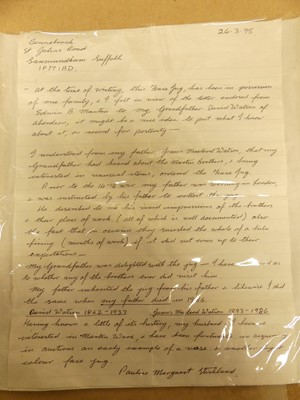 26-3-95
St Johns Road
Saxmundham Suffolk
IP17 1BD.
At the time of writing, this Face Jug, has been in possession
of our family, & I felt in view of the letter endorsed from
Edwin B Martin to my Grandfather David Watson of
Aberdeen, it might be a nice idea to put what I know
about it, on record for posterity —
I understood from my father James McLeod Watson, that my
Grandfather had heard about the Martin Brothers, & being
interested in unusual items, ordered the Face Jug.
Prior to the 1914 war, my father was working in London,
& was instructed by his father to collect the jug
He described to me his vivid impressions of the brothers
& their place of work (all of which is well documented) also
the fact that on occasions they smashed the whole of a kiln
firing (months of work) if it did not come up to their
expectations —
My Grandfather was delighted with the jug —
to whether any of the brothers ever did visit him
My father inherited the jug from his father & likewise I did
the same when my father died in 1986.
David Watson 1862 - 1937 James McLeod Watson 1893 - 1986
Having known a little of its history, my husband & I became
interested in Martin Ware, & have been fortunate in acquiring
in auctions an early example of a vase &
colour face jug
Pauline Margaret Strickland